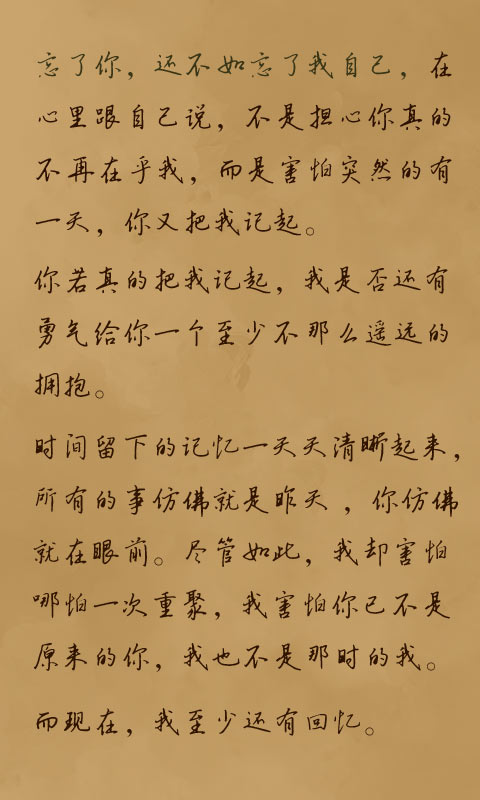 忘了你，还不如忘了我自己，在
心里跟自己说，不是担心你真的
不再在乎我，而是害怕突然的有
一天，你又把我记起。
你若真的把我记起，我是否还有
勇气给你一个至少不那么遥远的
拥抱。
时间留下的记忆一天天清晰起来，
所有的事仿佛就是昨天，你仿佛
就在眼前。尽管如此，我却害怕
哪怕一次重聚，我害怕你已不是
原来的你，我也不是那时的我。
而现在，我至少还有回忆。